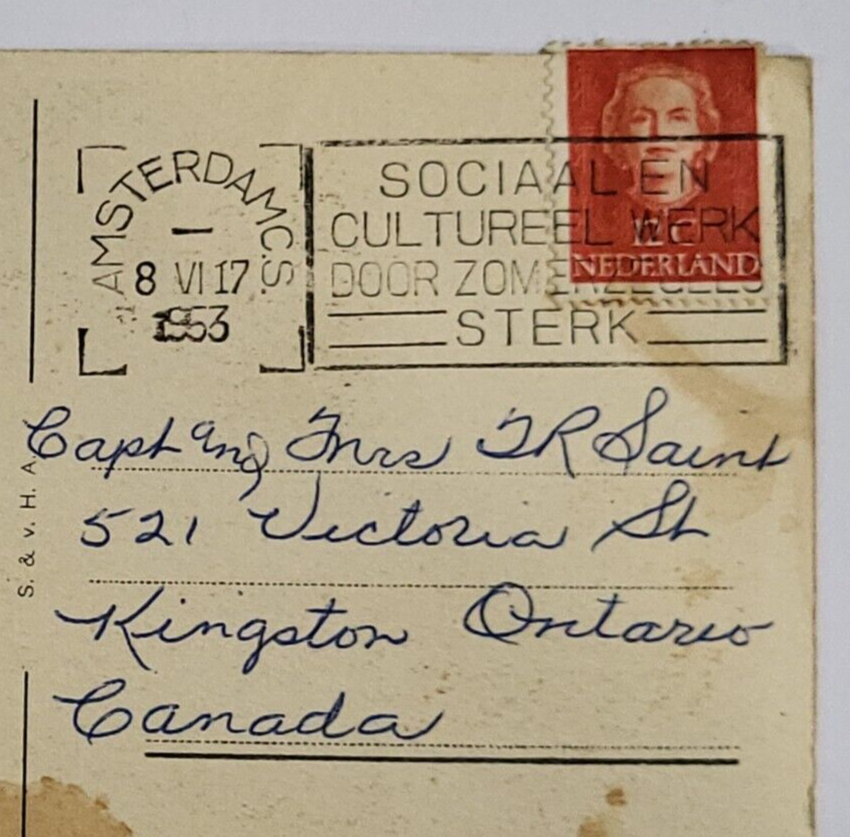 AMSTERDAM C.S.
8 VI 17
1953
SOCIAAL EN
CULTUREEL WERK
DOOR ZOMERZEGELS
STERK
NEDERLAND
S. & v. H. A.
Capt and Mrs TR Saint
521 Victoria St
Kingston Ontario
Canada